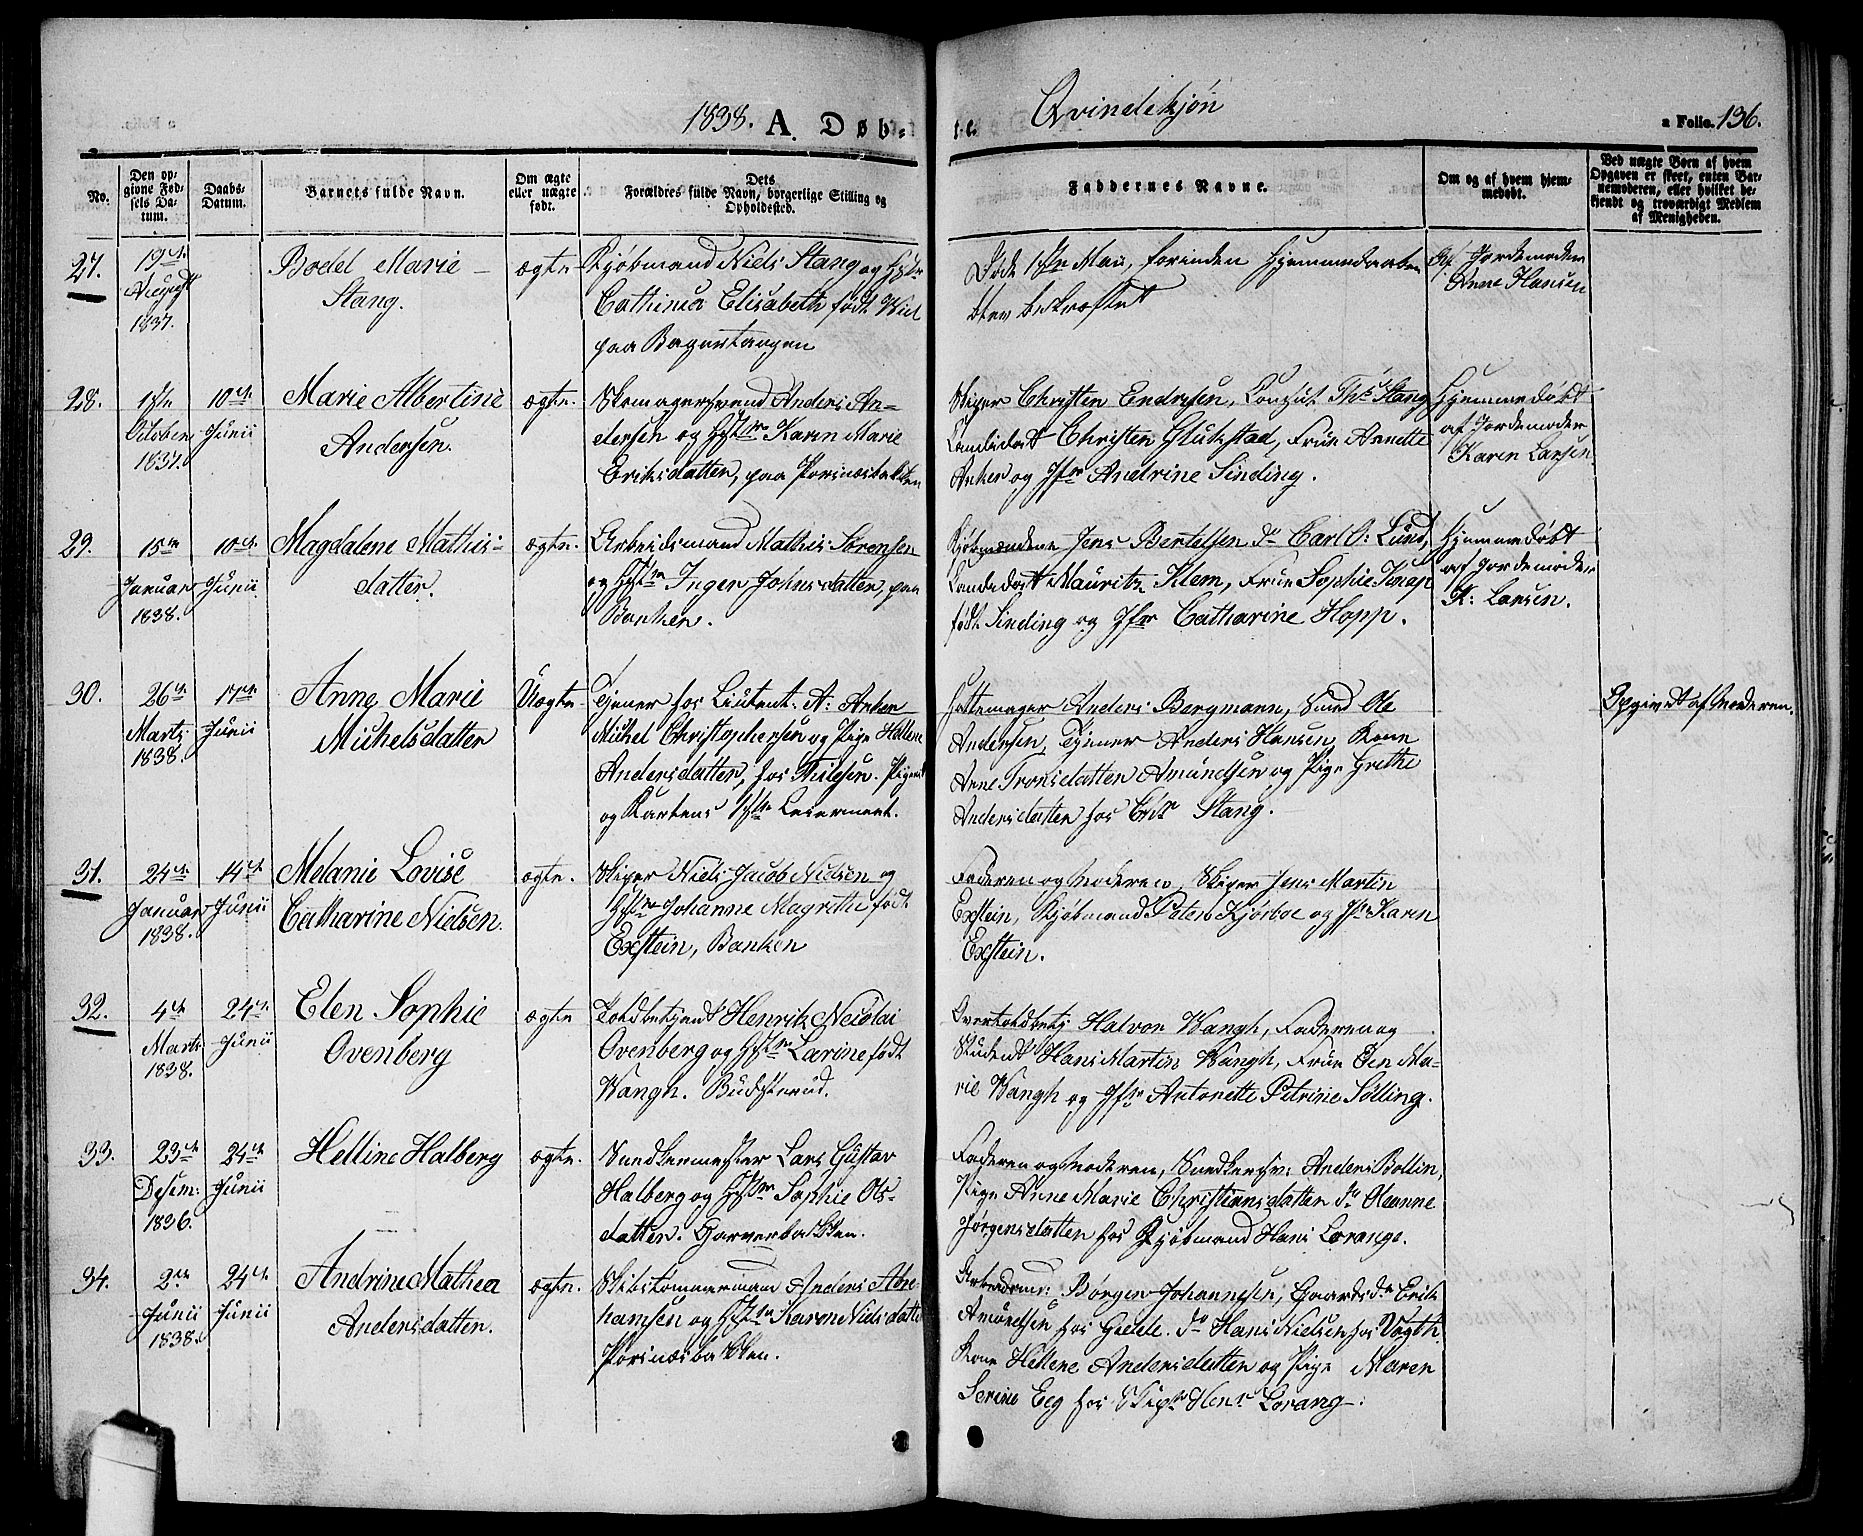 1838. A. Døb-
te. Qvindekjøn
a Folio. 136.
No.
Den op-
givne Fød-
sels Da-
tum.
Daabs-
Datum.
Barnets fulde Navn.
Om ægte
eller uægte
født.
Dets
Forældres fulde Navn, borgerlige Stilling og
Opholdssted.
Faddernes Navne.
Om og af hvem hjem-
medøbt.
Ved uægte Børn af hvem
Opgaven er skeet, enten Bar-
nemoderen, eller hvilket be-
kjendt og troværdigt Medlem
af Menigheden.
27.
19de
August
1837.
Bodel Marie
Stang.
ægte
Kjøbmand Niels Stang og Hstr
Cathinca Elisabeth født
paa Bagertangen
Døde Mai, forinden Hjemmedaaben
blev bekræftet
Af Jordemoder
Anne Hansen
28.
October
1837.
10de
Junii
Marie Albertine
Andersen.
ægte.
Skomagersvend Anders An-
dersen og Hstr Karen Marie
Eriksdatter, paa Porsnæsbakken
Skiper Christen Endresen, Consul Ths Stang
Candidat Christen Glükstad, Frue Annette
Anker og Jfr Andrine Sinding.
Hjemmedøbt
af Jordemoder
Karen Larsen
29.
15de
Januar
1838.
10de
Junii
Magdalene Mathis-
datter.
ægte.
Arbeidsmand Mathis Sørensen
og Hstr Inger Johnsdatter, paa
Banken.
Kjøbmændene Jens Bertelsen do Carl O: Lund,
Candidat Mauritz Klem, Frue Sophie Knap
født Sinding og Jfr Catharine Hopp.
Hjemmedøbt
af Jordemoder
K: Larsen.
30.
26de
Marts
1838.
17de
Junii
Anne Marie
Michelsdatter
Uægte
Tjener hos Lieutent: A: Anker
Michel Christophersen og Pige Hellene
Andersdatter, hos Pigens
og Karlens 1ste Leiermaal.
Hattemager Anders Bergmann, Svend Ole
Andersen, Tjener Anders Hansen, Kone
Anne Tronsdatter Amundsen og Pige Grethe
Andersdatter hos Stang.
Opgivet af Moderen.
31.
24de
Januar
1838.
14de
Junii
Melanie Lovise
Catharine Nielsen.
ægte.
Skiper Niels Jacob Nielsen og
Hstr Johanne Magrethe født
Exstein, Banken
Faderen og Moderen, Skiper Jens Martin
Exstein, Kjøbmand Peter Kjørboe og Jfr Karen
Exstein.
32.
4de
Marts
1838.
24de
Junii
Elen Sophie
Ovenberg
ægte
Toldbetjent Henrik Nicolai
Ovenberg og Hstr Lærine født
Wangh. Budsterud.
Overtoldbetj Halvor Wangh, Faderen og
Student Hans Martin Wangh, Frue Elen Ma-
rie Wangh og Jfr Antonette Petrine Sølling.
33.
23de
Desem:
1836.
24de
Junii
Helline Halberg
ægte.
Snedkermester Lars Gustav
Halberg og Hstr Sophie Ols-
datter. Garverbakken.
Faderen og Moderen, Snedkersv: Anders Bollin,
Pige Anne Marie Christiansdatter do Oleanne
Jørgensdatter hos Kjøbmand Hans Lorange.
34.
2den
Junii
1838.
24de
Junii
Andrine Mathea
Andersdatter.
ægte.
Skibstømmermand Anders Abra-
hamsen og Hstr Karen Nielsdatter
Porsnæsbakken.
Arbeidsmd: Børger Johannesen, Gaardsd. Erik
Amundsen hos Gedde. do Hans Nielsen hos Vogth.
Kone Hellene Andersdatter og Pige Maren
Serine Eeg hos Skipr Henr Lorang.